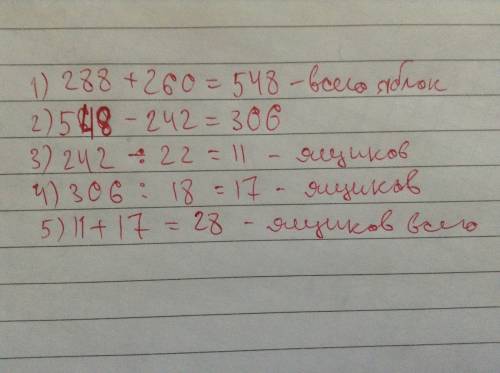 1) 288 + 260 = 548 - всего яблок
2) 548 - 242 = 306
3) 242 ÷ 22 = 11 - ящиков
4) 306 : 18 = 17 - ящиков
5) 11 + 17 = 28 - ящиков всего